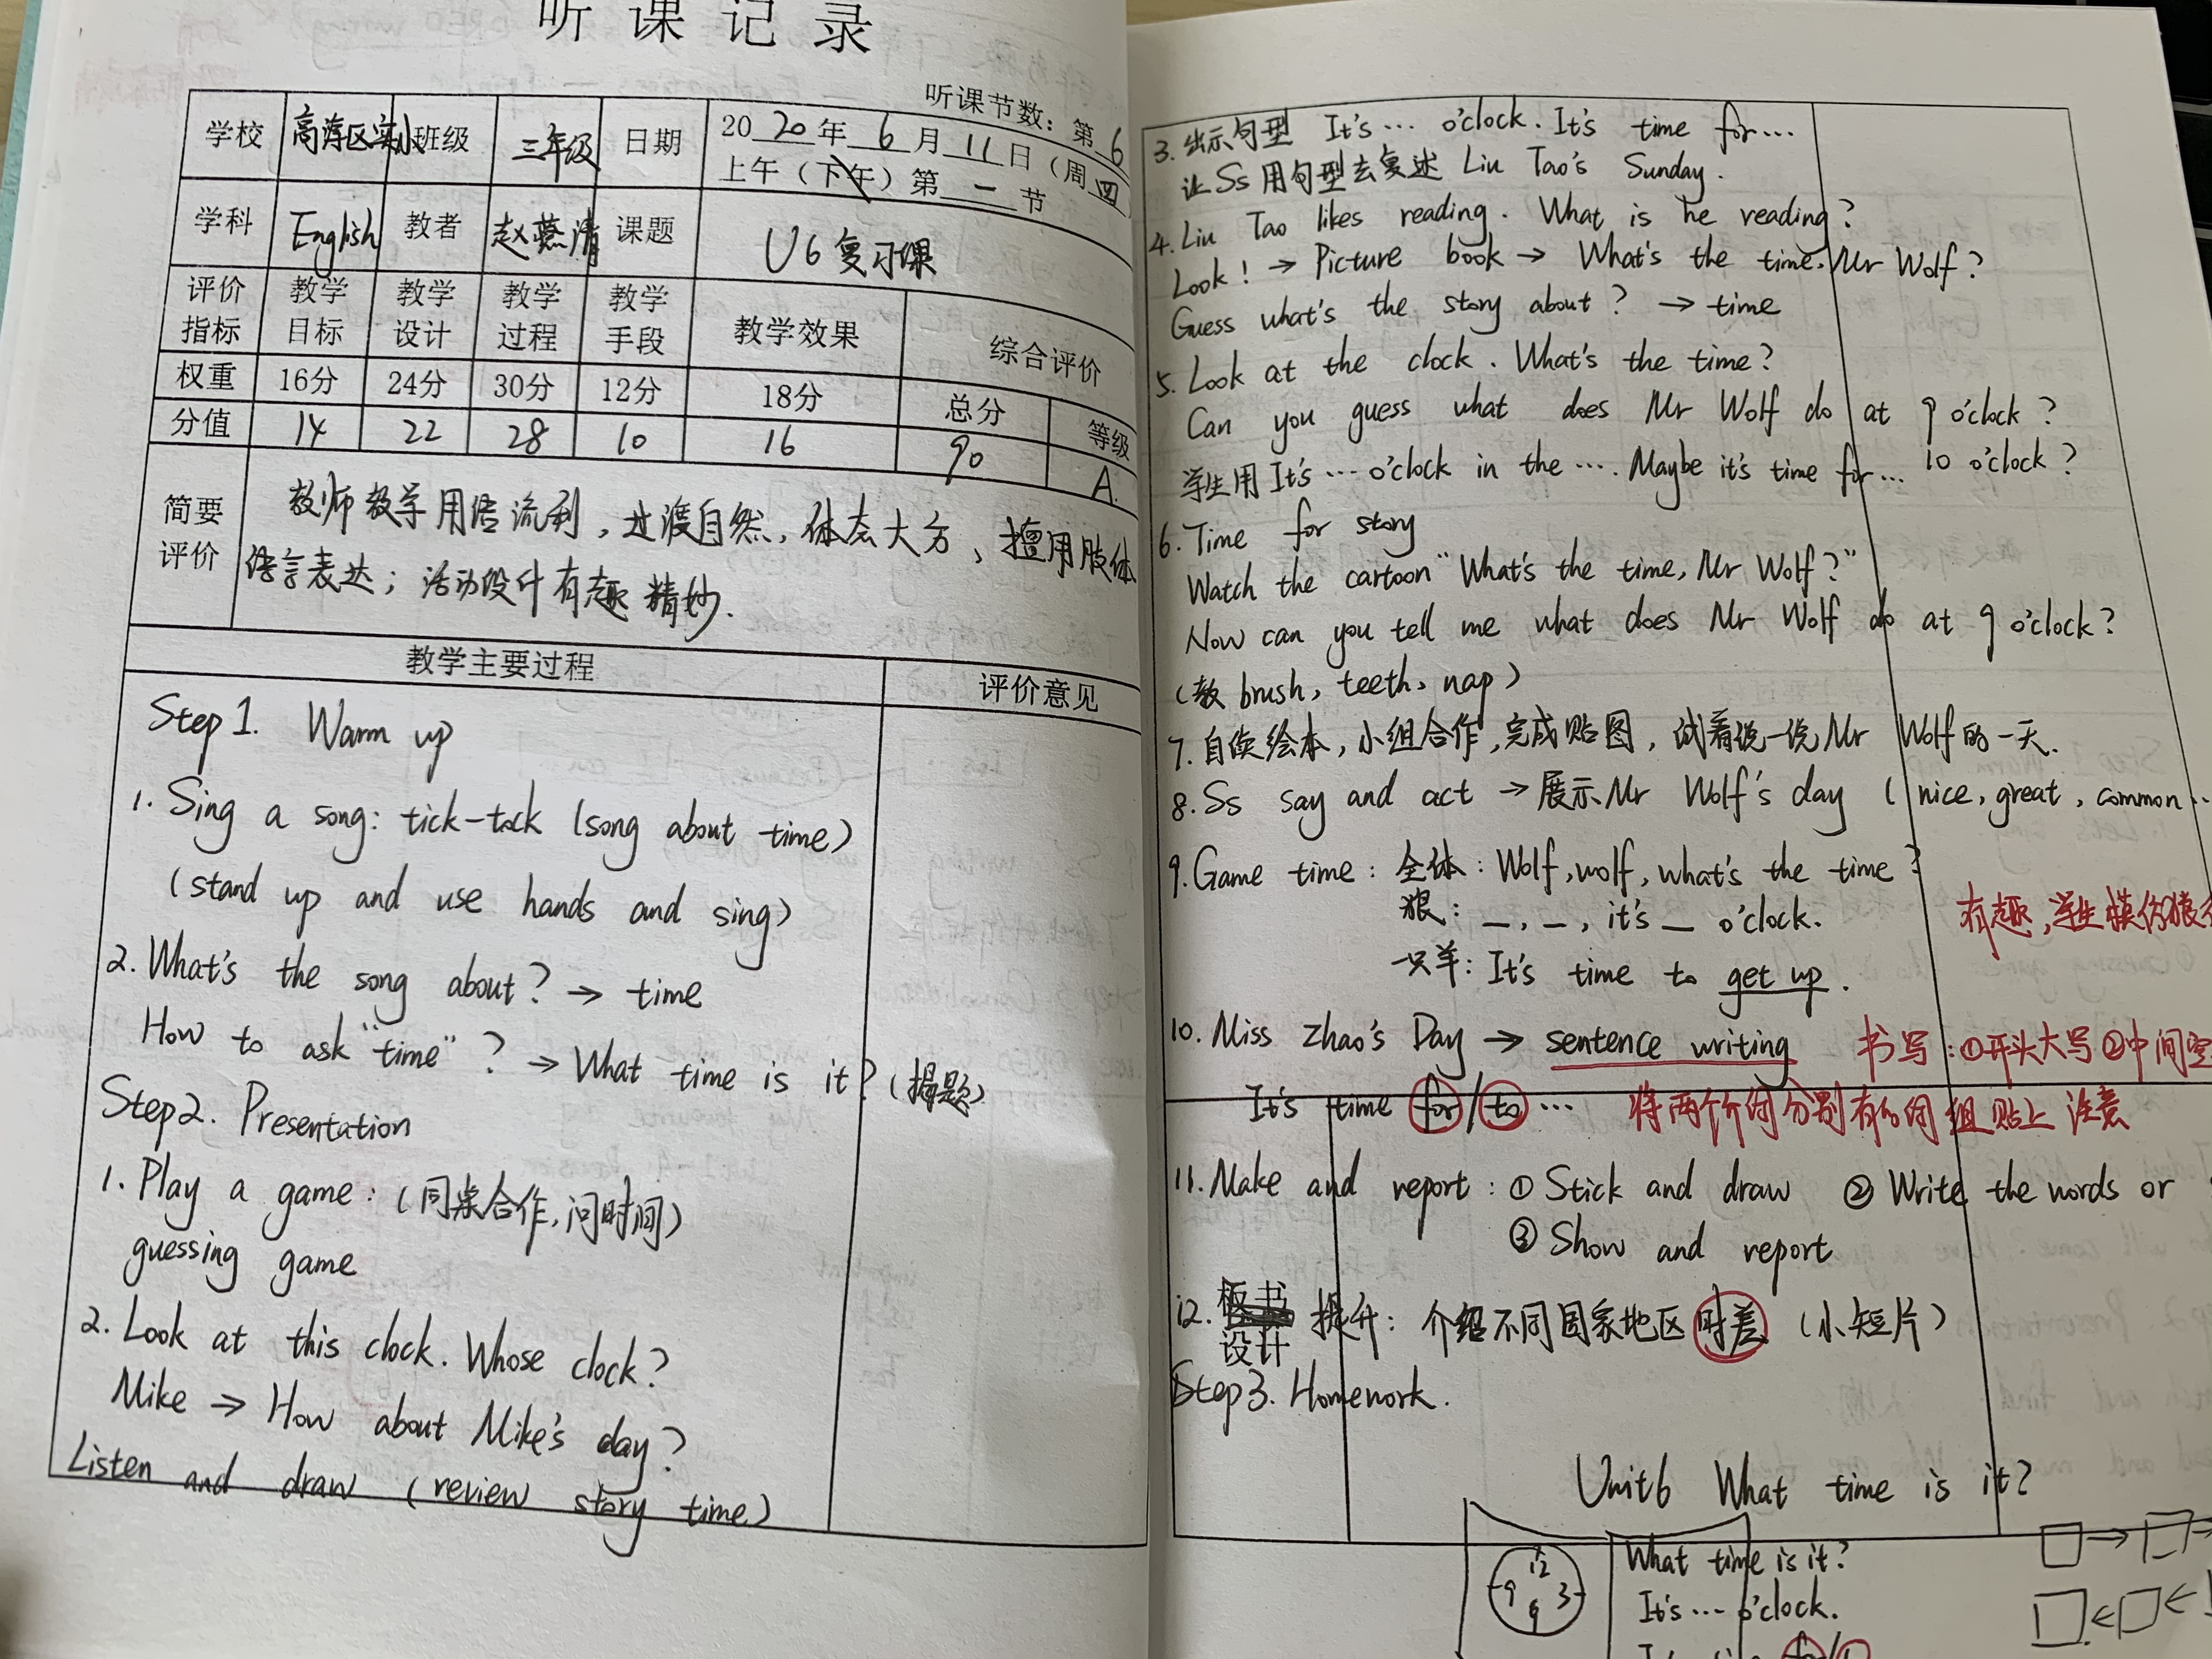 听课记录
听课节数：第6
学校 高淳区实小 班级 三年级 日期 2020年6月11日（周四
上午（下午）第一节
学科 English 教者 赵燕清 课题 U6 复习课
评价指标 教学目标 教学设计 教学过程 教学手段 教学效果 综合评价
权重 16分 24分 30分 12分 18分 总分 等级
分值 14 22 28 10 16 90 A.
简要评价
教师教学用语流利，过渡自然，体态大方，擅用肢体
语言表达；活动设计有趣精妙.
教学主要过程 评价意见
Step 1. Warm up
1. Sing a song: tick-tock (song about time)
(stand up and use hands and sing)
2. What's the song about? → time
How to ask "time"? → What time is it? (揭题)
Step 2. Presentation
1. Play a game: (同桌合作,问时间)
guessing game
2. Look at this clock. Whose clock?
Mike → How about Mike's day?
Listen and draw (review story time)
3. 出示句型 It's … o'clock. It's time for…
让Ss用句型去复述 Liu Tao's Sunday.
4. Liu Tao likes reading. What is he reading?
Look! → Picture book → What's the time, Mr Wolf?
Guess what's the story about? → time
5. Look at the clock. What's the time?
Can you guess what does Mr Wolf do at 9 o'clock?
学生用 It's … o'clock in the …. Maybe it's time for… 10 o'clock?
6. Time for story
Watch the cartoon "What's the time, Mr Wolf?"
Now can you tell me what does Mr Wolf do at 9 o'clock?
(教 brush, teeth, nap)
7. 自读绘本，小组合作，完成贴图，试着说一说Mr Wolf的一天.
8. Ss say and act → 展示Mr Wolf's day (nice, great, common…
9. Game time: 全体: Wolf, wolf, what's the time?
狼: _, _, it's _ o'clock.
有趣，学生模仿狼
一只羊: It's time to get up.
10. Miss Zhao's Day → sentence writing 书写：①开头大写②中间空
It's time for/to … 将两个介词分别有的词组贴上 注意
11. Make and report: ① Stick and draw ② Write the words or
③ Show and report
板书设计
12. 提升：介绍不同国家地区时差（小短片）
Step 3. Homework.
Unit6 What time is it?
12 9 3 6
What time is it?
It's … o'clock.